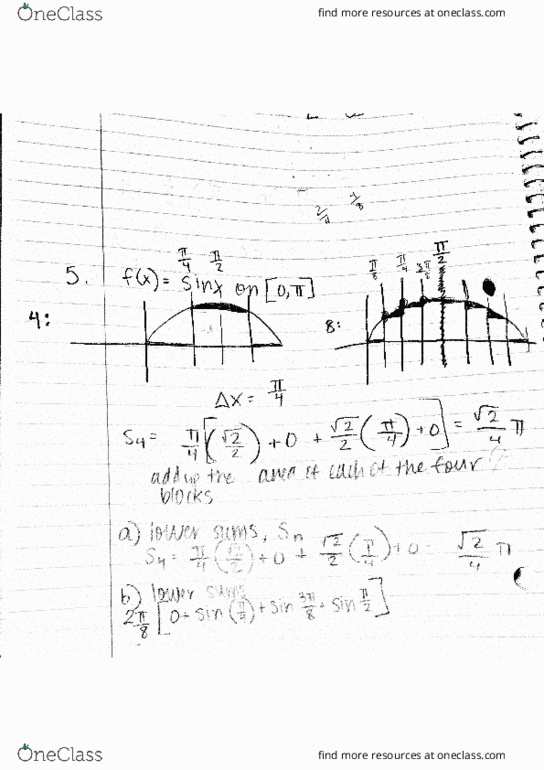 OneClass
find more resources at oneclass.com
2/4 1/8
π/4 π/2
π/8 π/4 3π/8 π/2
5. f(x) = sinx on [0,π]
4:
8:
Δx = π/4
S4 = π/4[(√2/2) + 0 + √2/2 (π/4) + 0] = √2/4 π
add up the area of each of the four
blocks
a) lower sums, Sn
S4 = π/4 (√2/2) + 0 + √2/2 (π/4) + 0 = √2/4 π
b) lower sums
2π/8 [0 + sin (π/8) + sin 3π/8 + sin π/2]
OneClass
find more resources at oneclass.com